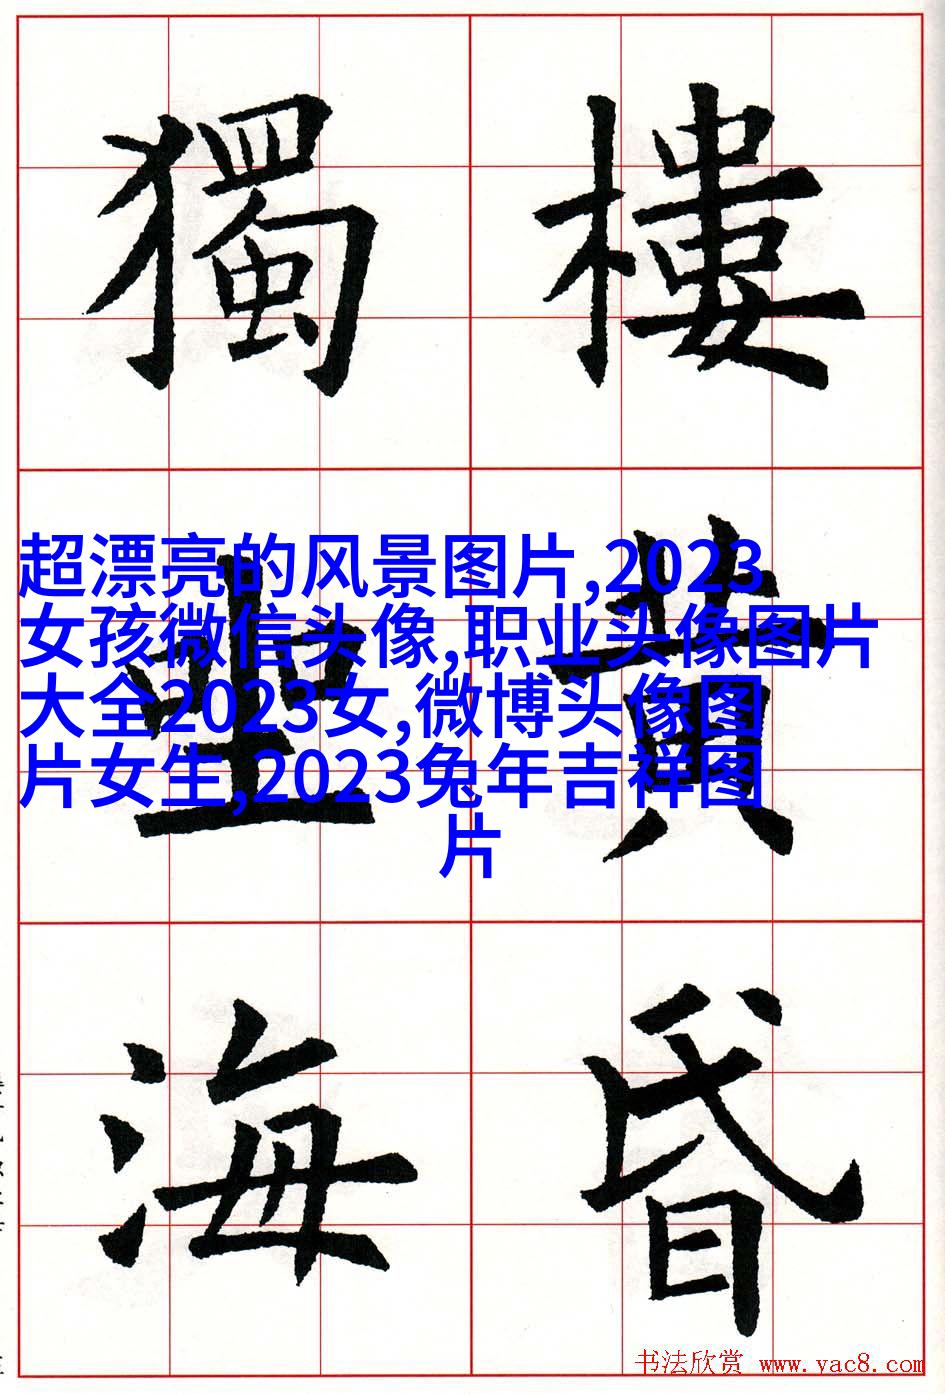 樓黃昏
獨海
超漂亮的风景图片,2023
女孩微信头像,职业头像图片
大全2023女,微博头像图
片女生,2023兔年吉祥图
片
书法欣赏 www.yac8.com